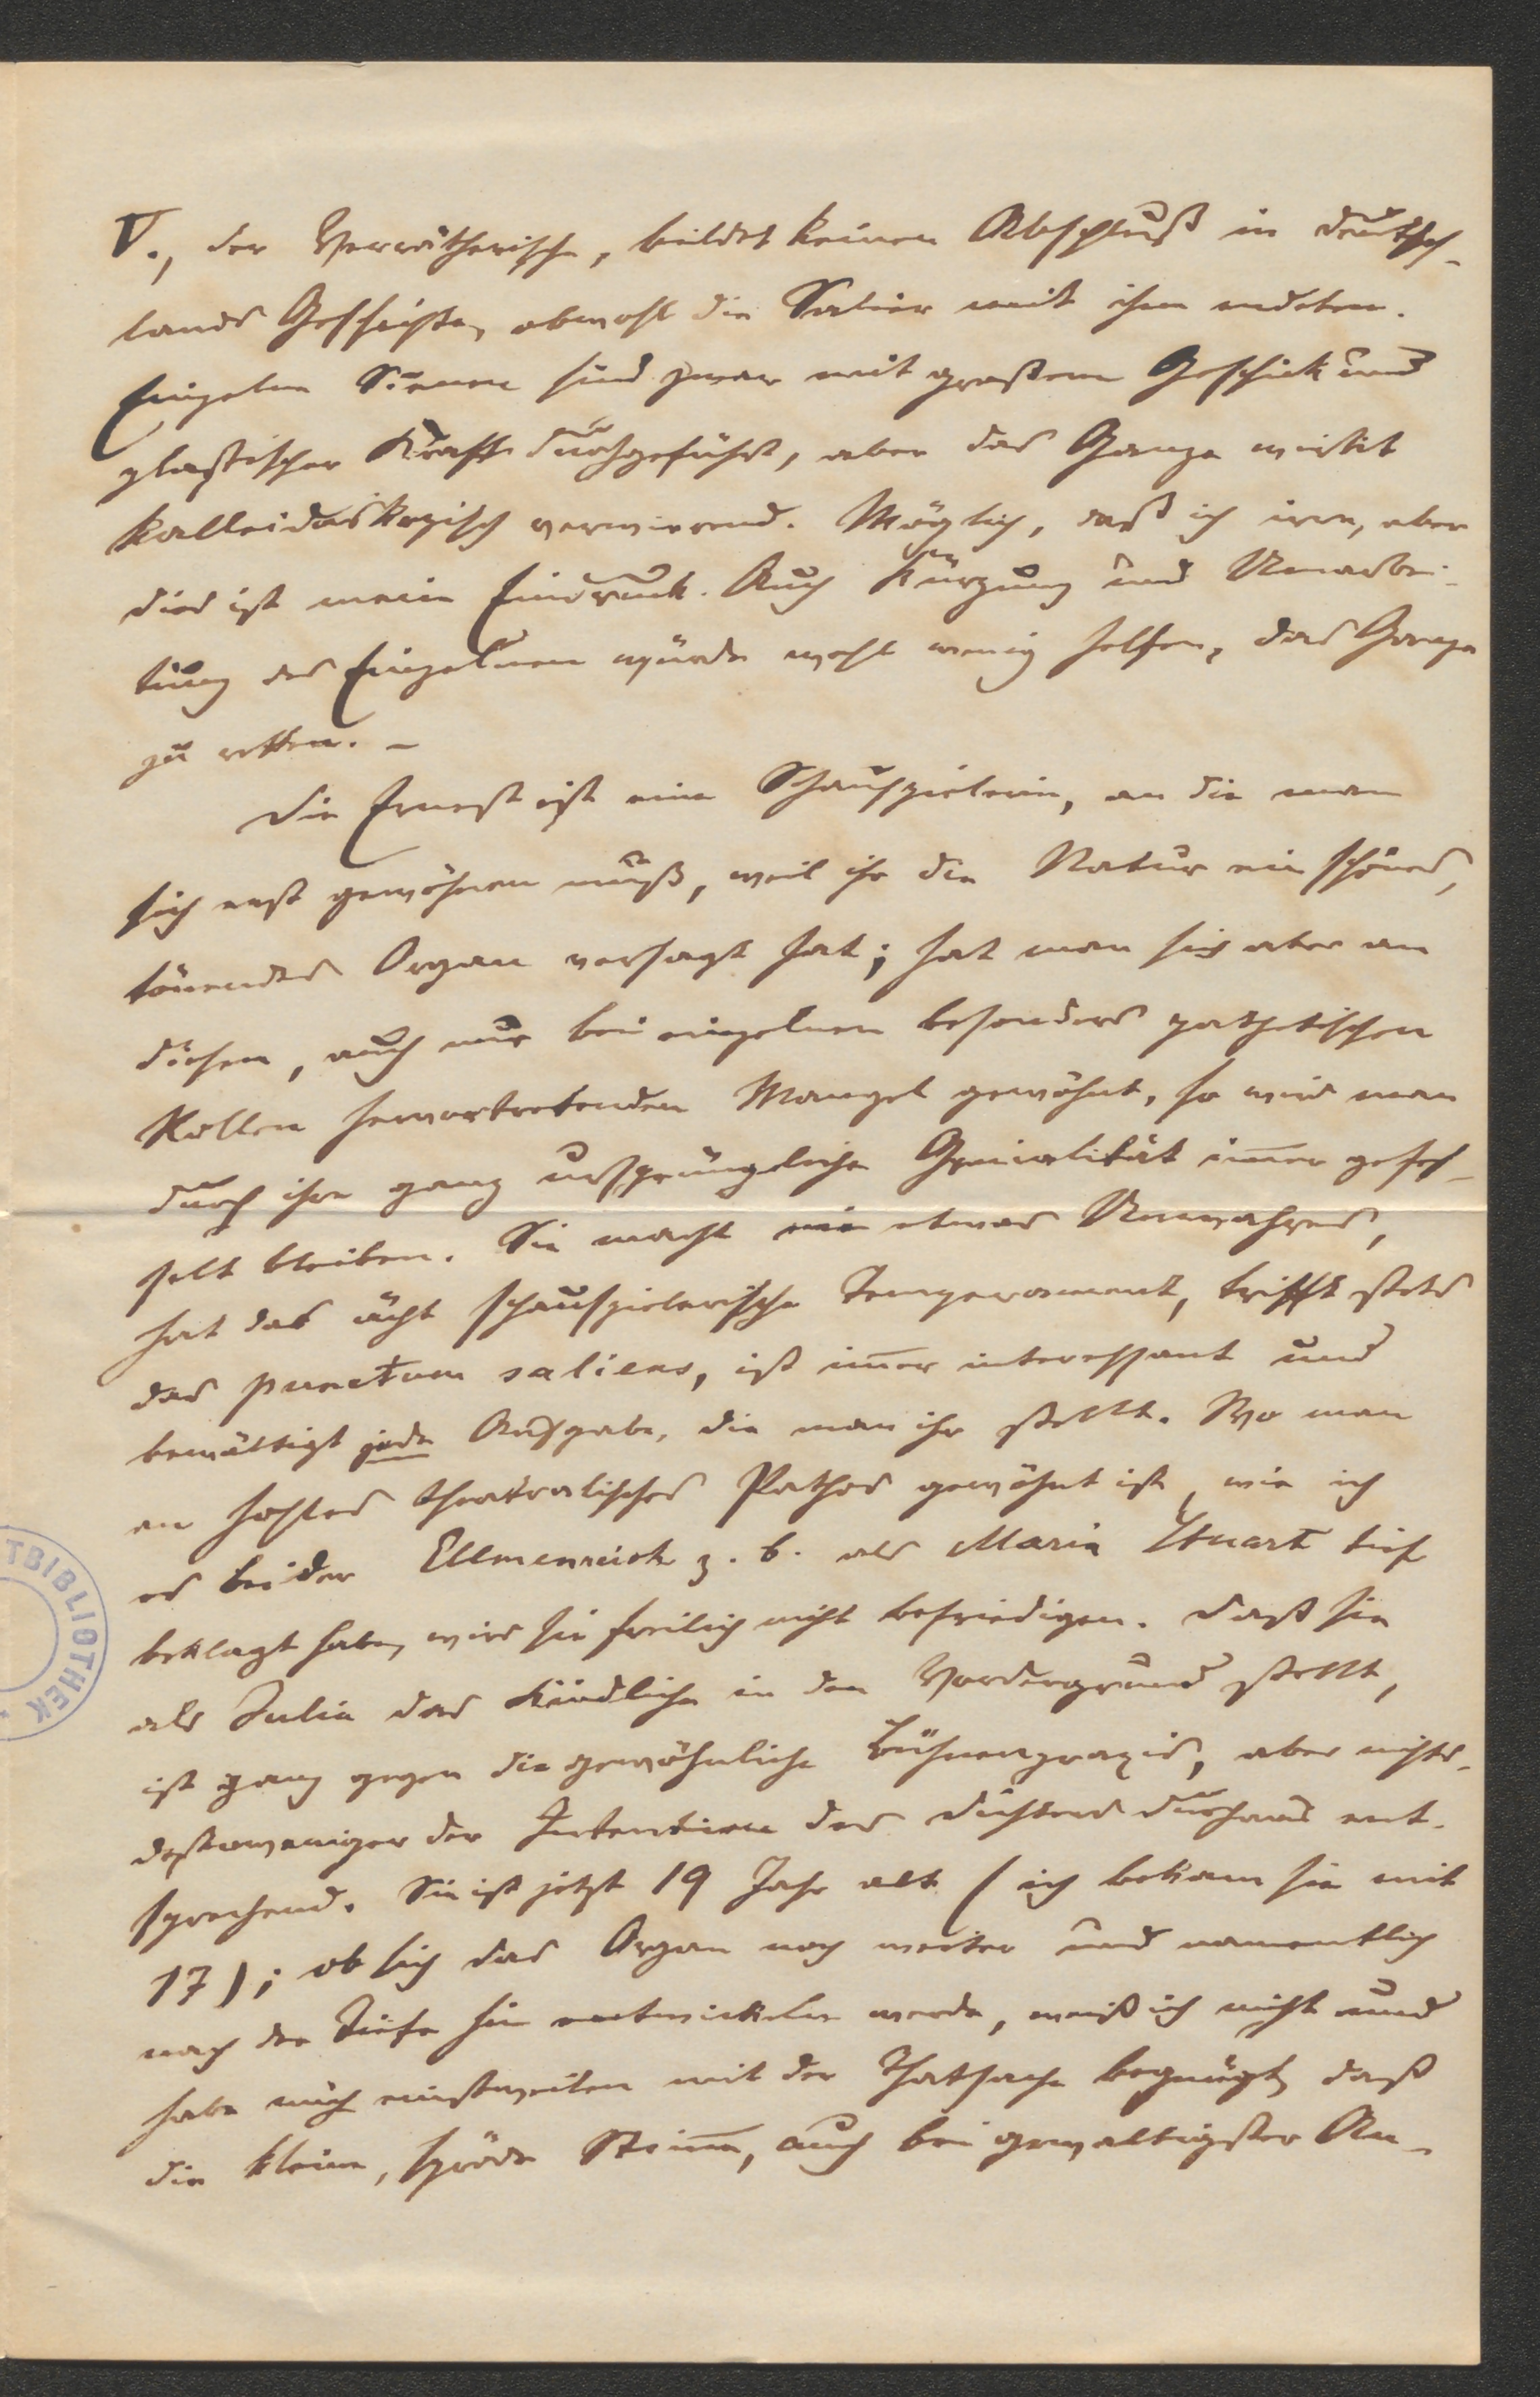 V., der Verrätherische, bildet keinen Abschluß in Deutsch-
lands Geschichte, obwohl die Salier mit ihm endeten.
Einzelne Scenen sind zwar mit großem Geschick und
plastischer Kraft durchgeführt, aber das Ganze wirkt
kalleidoskopisch verwirrend. Möglich, daß ich irre, aber
dies ist mein Eindruck. Auch Kürzung und Umarbei-
tung des Einzelnen würde wohl wenig helfen, das Ganze
zu retten. –
Die Ernest ist eine Schauspielerin, an die man
sich erst gewöhnen muß, weil ihr die Natur ein schönes,
tönendes Organ versagt hat; hat man sich aber an
diesen, auch nur bei einzelnen besonders pathetischen
Rollen hervortretenden Mangel gewöhnt, so wird man
durch ihre ganz ursprüngliche Genialität im̄er gefes-
selt bleiben. Sie macht nie etwas Unwahres,
hat das ächt schauspielerische Temperament, trifft stets
das punctum saliens, ist im̄er interessant und
bewältigt jede Aufgabe, die man ihr stellt. Wo man
an hohles theatralisches Pathos gewöhnt ist, wie ich
es bei der Ellmenreich z. b. als Maria Stuart tief
beklagt habe, wird sie freilich nicht befriedigen. Daß sie
als Julia das Kindliche in den Vordergrund stellt,
ist ganz gegen die gewöhnliche Bühnenpraxis, aber nichts-
destoweniger der Intention des Dichters durchaus ent-
sprechend. Sie ist jetzt 19 Jahr alt (ich bekam sie mit
17); ob sich das Organ noch weiter und namentlich
nach der Tiefe hin entwickeln werde, weiß ich nicht und
habe mich einstweilen mit der Thatsache begnügt, daß
die kleine, spröde Stim̄e, auch bei gewaltigster An-
TBIBLIOTHEK